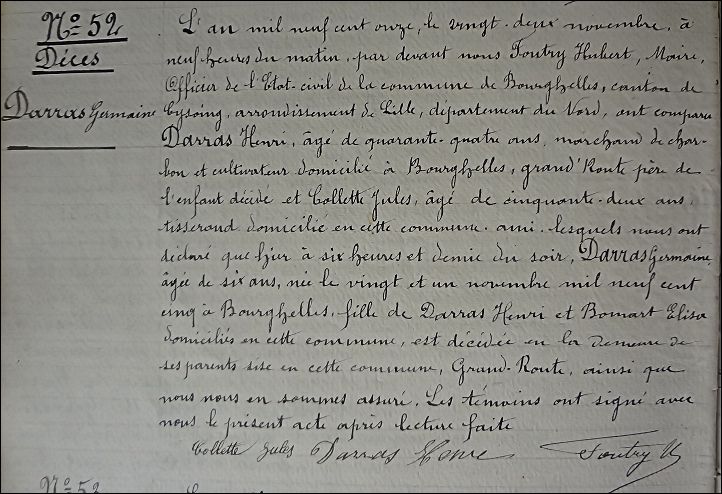 No 52
Décès
Darras Germaine
L'an mil neuf cent onze, le vingt-deux novembre, à
neuf heures du matin, par devant nous Foutry Hubert, Maire,
Officier de l'Etat-civil de la commune de Bourghelles, canton de
Cysoing, arrondissement de Lille, département du Nord, ont comparu
Darras Henri, âgé de quarante-quatre ans, marchand de char-
bon et cultivateur domicilié à Bourghelles, grand'Route père de
l'enfant décédé et Collette Jules, âgé de cinquante-deux ans,
tisserand domicilié en cette commune, ami, lesquels nous ont
déclaré que hier à six heures et demie du soir, Darras Germaine,
âgée de six ans, née le vingt et un novembre mil neuf cent
cinq à Bourghelles, fille de Darras Henri et Bomart Elisa
domiciliés en cette commune, est décédée en la demeure de
ses parents sise en cette commune, Grand-Route, ainsi que
nous nous en sommes assuré. Les témoins ont signé avec
nous le présent acte après lecture faite
Collette Jules Darras Henri Foutry H
No 53